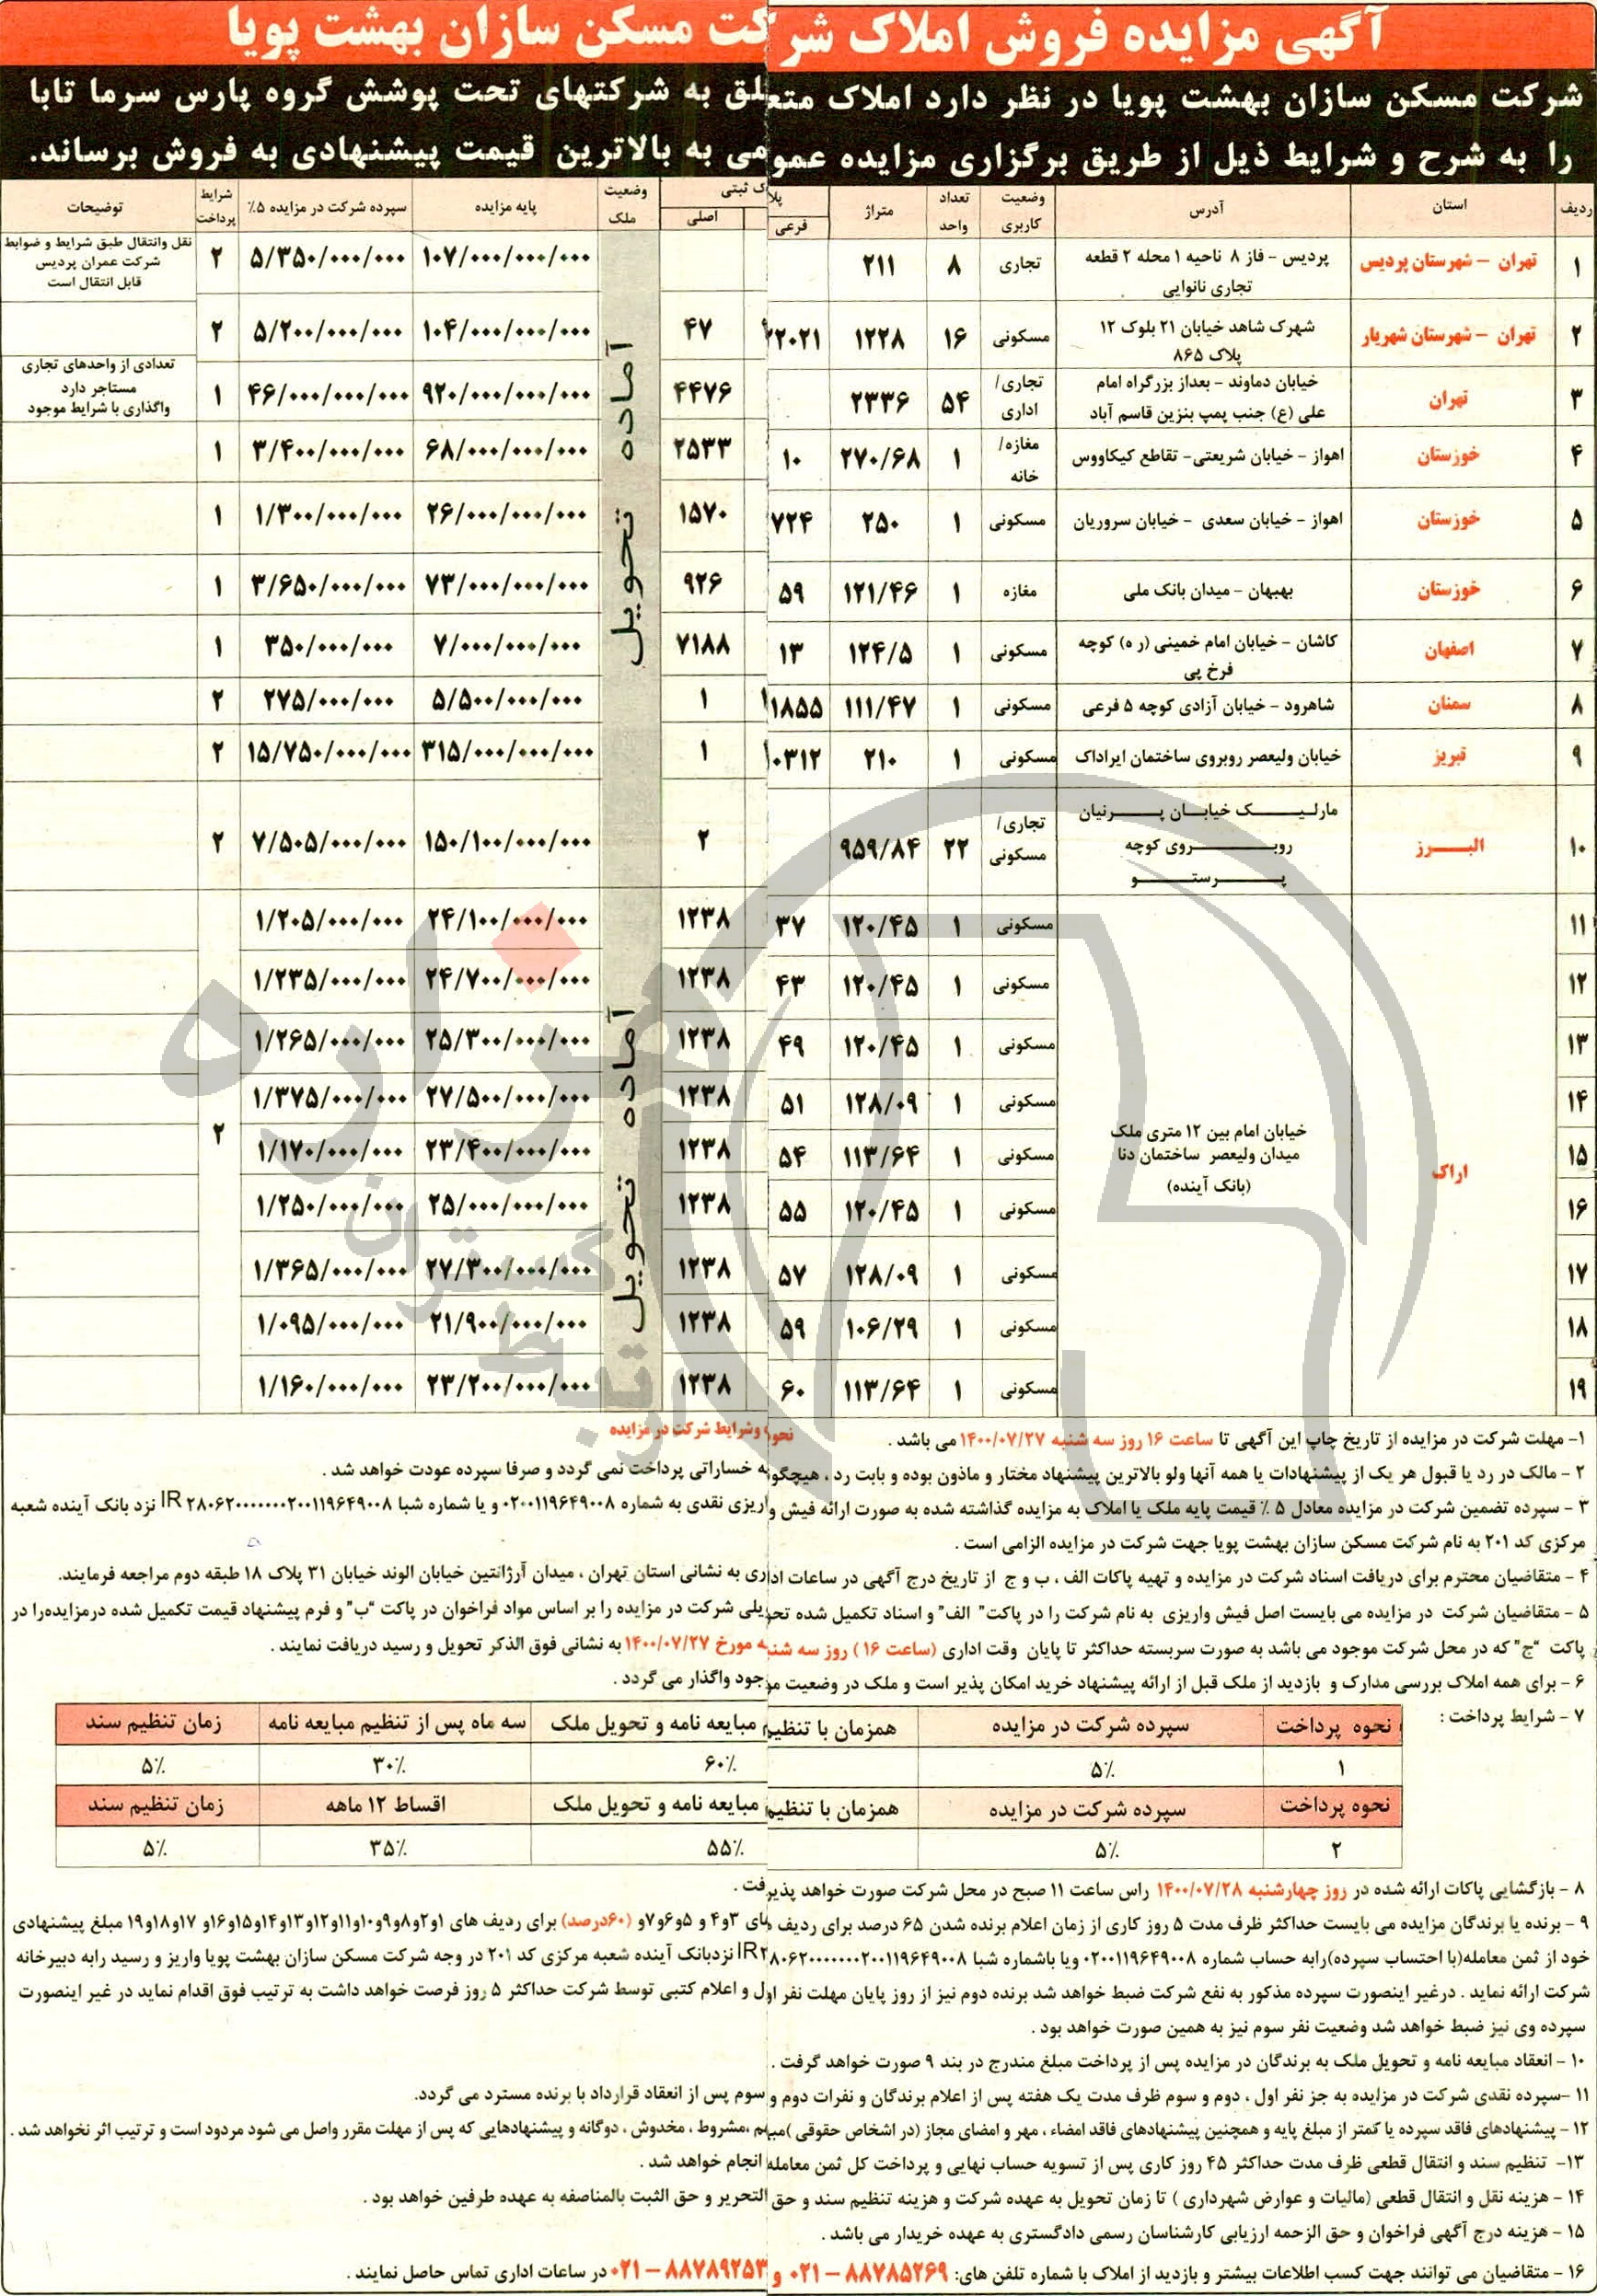 آگهی مزایده فروش املاک شرکت مسکن سازان بهشت پویا
شرکت مسکن سازان بهشت پویا در نظر دارد املاک متعلق به شرکتهای تحت پوشش گروه پارس سرما تابا
را به شرح و شرایط ذیل از طریق برگزاری مزایده عمومی به بالاترین قیمت پیشنهادی به فروش برساند.
ردیف | استان | آدرس | وضعیت کاربری | تعداد واحد | متراژ | پلاک ثبتی فرعی | اصلی | وضعیت ملک | پایه مزایده | سپرده شرکت در مزایده ۵٪ | شرایط پرداخت | توضیحات
۱ | تهران - شهرستان پردیس | پردیس - فاز ۸ ناحیه ۱ محله ۲ قطعه تجاری نانوایی | تجاری | ۸ | ۲۱۱ | ۱۰۷/۰۰۰/۰۰۰/۰۰۰ | ۵/۳۵۰/۰۰۰/۰۰۰ | ۲ | نقل وانتقال طبق شرایط و ضوابط شرکت عمران پردیس قابل انتقال است
۲ | تهران - شهرستان شهریار | شهرک شاهد خیابان ۲۱ بلوک ۱۲ پلاک ۸۶۵ | مسکونی | ۱۶ | ۱۲۲۸ | ۲۲۰۲۱ | ۴۷ | ۱۰۴/۰۰۰/۰۰۰/۰۰۰ | ۵/۲۰۰/۰۰۰/۰۰۰ | ۲
۳ | تهران | خیابان دماوند - بعداز بزرگراه امام علی (ع) جنب پمپ بنزین قاسم آباد | تجاری/ اداری | ۵۴ | ۲۳۳۶ | ۴۴۷۶ | ۹۲۰/۰۰۰/۰۰۰/۰۰۰ | ۴۶/۰۰۰/۰۰۰/۰۰۰ | ۱ | تعدادی از واحدهای تجاری مستاجر دارد واگذاری با شرایط موجود
۴ | خوزستان | اهواز - خیابان شریعتی- تقاطع کیکاووس | مغازه/ خانه | ۱ | ۲۷۰/۶۸ | ۱۰ | ۲۵۳۳ | ۶۸/۰۰۰/۰۰۰/۰۰۰ | ۳/۴۰۰/۰۰۰/۰۰۰ | ۱
۵ | خوزستان | اهواز - خیابان سعدی - خیابان سروریان | مسکونی | ۱ | ۲۵۰ | ۷۲۴ | ۱۵۷۰ | ۲۶/۰۰۰/۰۰۰/۰۰۰ | ۱/۳۰۰/۰۰۰/۰۰۰ | ۱
۶ | خوزستان | بهبهان - میدان بانک ملی | مغازه | ۱ | ۱۲۱/۴۶ | ۵۹ | ۹۲۶ | ۷۳/۰۰۰/۰۰۰/۰۰۰ | ۳/۶۵۰/۰۰۰/۰۰۰ | ۱
۷ | اصفهان | کاشان - خیابان امام خمینی (ره) کوچه فرخ پی | مسکونی | ۱ | ۱۲۴/۵ | ۱۳ | ۷۱۸۸ | ۷/۰۰۰/۰۰۰/۰۰۰ | ۳۵۰/۰۰۰/۰۰۰ | ۱
۸ | سمنان | شاهرود - خیابان آزادی کوچه ۵ فرعی | مسکونی | ۱ | ۱۱۱/۴۷ | ۱۱۸۵۵ | ۱ | ۵/۵۰۰/۰۰۰/۰۰۰ | ۲۷۵/۰۰۰/۰۰۰ | ۲
۹ | تبریز | خیابان ولیعصر روبروی ساختمان ایراداک | مسکونی | ۱ | ۲۱۰ | ۱۰۳۱۲ | ۱ | ۳۱۵/۰۰۰/۰۰۰/۰۰۰ | ۱۵/۷۵۰/۰۰۰/۰۰۰ | ۲
۱۰ | البرز | مارلیک خیابان پرنیان روبروی کوچه پرستو | تجاری/ مسکونی | ۲۲ | ۹۵۹/۸۴ | ۲ | ۱۵۰/۱۰۰/۰۰۰/۰۰۰ | ۷/۵۰۵/۰۰۰/۰۰۰ | ۲
آماده تحویل
۱۱ | مسکونی | ۱ | ۱۲۰/۴۵ | ۳۷ | ۱۲۳۸ | ۲۴/۱۰۰/۰۰۰/۰۰۰ | ۱/۲۰۵/۰۰۰/۰۰۰
۱۲ | مسکونی | ۱ | ۱۲۰/۴۵ | ۴۳ | ۱۲۳۸ | ۲۴/۷۰۰/۰۰۰/۰۰۰ | ۱/۲۳۵/۰۰۰/۰۰۰
۱۳ | مسکونی | ۱ | ۱۲۰/۴۵ | ۴۹ | ۱۲۳۸ | ۲۵/۳۰۰/۰۰۰/۰۰۰ | ۱/۲۶۵/۰۰۰/۰۰۰
۱۴ | مسکونی | ۱ | ۱۲۸/۰۹ | ۵۱ | ۱۲۳۸ | ۲۷/۵۰۰/۰۰۰/۰۰۰ | ۱/۳۷۵/۰۰۰/۰۰۰
۱۵ | اراک | خیابان امام بین ۱۲ متری ملک میدان ولیعصر ساختمان دنا (بانک آینده) | مسکونی | ۱ | ۱۱۳/۶۴ | ۵۴ | ۱۲۳۸ | ۲۳/۴۰۰/۰۰۰/۰۰۰ | ۱/۱۷۰/۰۰۰/۰۰۰ | ۲
۱۶ | مسکونی | ۱ | ۱۲۰/۴۵ | ۵۵ | ۱۲۳۸ | ۲۵/۰۰۰/۰۰۰/۰۰۰ | ۱/۲۵۰/۰۰۰/۰۰۰
۱۷ | مسکونی | ۱ | ۱۲۸/۰۹ | ۵۷ | ۱۲۳۸ | ۲۷/۳۰۰/۰۰۰/۰۰۰ | ۱/۳۶۵/۰۰۰/۰۰۰
۱۸ | مسکونی | ۱ | ۱۰۶/۲۹ | ۵۹ | ۱۲۳۸ | ۲۱/۹۰۰/۰۰۰/۰۰۰ | ۱/۰۹۵/۰۰۰/۰۰۰
۱۹ | مسکونی | ۱ | ۱۱۳/۶۴ | ۶۰ | ۱۲۳۸ | ۲۳/۲۰۰/۰۰۰/۰۰۰ | ۱/۱۶۰/۰۰۰/۰۰۰
آماده تحویل
نحوه وشرایط شرکت در مزایده
۱- مهلت شرکت در مزایده از تاریخ چاپ این آگهی تا ساعت ۱۶ روز سه شنبه ۱۴۰۰/۰۷/۲۷ می باشد .
۲ - مالک در رد یا قبول هر یک از پیشنهادات یا همه آنها ولو بالاترین پیشنهاد مختار و ماذون بوده و بابت رد ، هیچگونه خساراتی پرداخت نمی گردد و صرفا سپرده عودت خواهد شد .
۳ - سپرده تضمین شرکت در مزایده معادل ۵ ٪ قیمت پایه ملک یا املاک به مزایده گذاشته شده به صورت ارائه فیش واریزی نقدی به شماره ۰۲۰۰۱۱۹۶۴۹۰۰۸ و یا شماره شبا IR ۲۸۰۶۲۰۰۰۰۰۰۰۲۰۰۱۱۹۶۴۹۰۰۸ نزد بانک آینده شعبه
مرکزی کد ۲۰۱ به نام شرکت مسکن سازان بهشت پویا جهت شرکت در مزایده الزامی است .
۴ - متقاضیان محترم برای دریافت اسناد شرکت در مزایده و تهیه پاکات الف ، ب و ج از تاریخ درج آگهی در ساعات اداری به نشانی استان تهران ، میدان آرژانتین خیابان الوند خیابان ۳۱ پلاک ۱۸ طبقه دوم مراجعه فرمایند.
۵ - متقاضیان شرکت در مزایده می بایست اصل فیش واریزی به نام شرکت را در پاکت" الف" و اسناد تکمیل شده تحویلی شرکت در مزایده را بر اساس مواد فراخوان در پاکت "ب" و فرم پیشنهاد قیمت تکمیل شده درمزایده‌را در
پاکت "ج" که در محل شرکت موجود می باشد به صورت سربسته حداکثر تا پایان وقت اداری (ساعت ۱۶ ) روز سه شنبه مورخ ۱۴۰۰/۰۷/۲۷ به نشانی فوق الذکر تحویل و رسید دریافت نمایند .
۶ - برای همه املاک بررسی مدارک و بازدید از ملک قبل از ارائه پیشنهاد خرید امکان پذیر است و ملک در وضعیت موجود واگذار می گردد .
۷ - شرایط پرداخت :
نحوه پرداخت | سپرده شرکت در مزایده | همزمان با تنظیم مبایعه نامه و تحویل ملک | سه ماه پس از تنظیم مبایعه نامه | زمان تنظیم سند
۱ | ۵٪ | ۶۰٪ | ۳۰٪ | ۵٪
نحوه پرداخت | سپرده شرکت در مزایده | همزمان با تنظیم مبایعه نامه و تحویل ملک | اقساط ۱۲ ماهه | زمان تنظیم سند
۲ | ۵٪ | ۵۵٪ | ۳۵٪ | ۵٪
۸ - بازگشایی پاکات ارائه شده در روز چهارشنبه ۱۴۰۰/۰۷/۲۸ راس ساعت ۱۱ صبح در محل شرکت صورت خواهد پذیرفت .
۹ - برنده یا برندگان مزایده می بایست حداکثر ظرف مدت ۵ روز کاری از زمان اعلام برنده شدن ۶۵ درصد برای ردیف های ۳و۴ و ۵و۶و۷ و (۶۰درصد) برای ردیف های ۱و۲و۸و۹و۱۰و۱۱و۱۲و۱۳و۱۴و۱۵و۱۶و ۱۷و۱۸و۱۹ مبلغ پیشنهادی
خود از ثمن معامله(با احتساب سپرده)رابه حساب شماره ۰۲۰۰۱۱۹۶۴۹۰۰۸ ویا باشماره شبا IR۲۸۰۶۲۰۰۰۰۰۰۰۲۰۰۱۱۹۶۴۹۰۰۸ نزدبانک آینده شعبه مرکزی کد ۲۰۱ در وجه شرکت مسکن سازان بهشت پویا واریز و رسید رابه دبیرخانه
شرکت ارائه نماید . درغیر اینصورت سپرده مذکور به نفع شرکت ضبط خواهد شد برنده دوم نیز از روز پایان مهلت نفر اول و اعلام کتبی توسط شرکت حداکثر ۵ روز فرصت خواهد داشت به ترتیب فوق اقدام نماید در غیر اینصورت
سپرده وی نیز ضبط خواهد شد وضعیت نفر سوم نیز به همین صورت خواهد بود .
۱۰ - انعقاد مبایعه نامه و تحویل ملک به برندگان در مزایده پس از پرداخت مبلغ مندرج در بند ۹ صورت خواهد گرفت .
۱۱ -سپرده نقدی شرکت در مزایده به جز نفر اول ، دوم و سوم ظرف مدت یک هفته پس از اعلام برندگان و نفرات دوم و سوم پس از انعقاد قرارداد با برنده مسترد می گردد.
۱۲ - پیشنهادهای فاقد سپرده یا کمتر از مبلغ پایه و همچنین پیشنهادهای فاقد امضاء ، مهر و امضای مجاز (در اشخاص حقوقی )مبهم ،مشروط ، مخدوش ، دوگانه و پیشنهادهایی که پس از مهلت مقرر واصل می شود مردود است و ترتیب اثر نخواهد شد .
۱۳- تنظیم سند و انتقال قطعی ظرف مدت حداکثر ۴۵ روز کاری پس از تسویه حساب نهایی و پرداخت کل ثمن معامله انجام خواهد شد .
۱۴ - هزینه نقل و انتقال قطعی (مالیات و عوارض شهرداری ) تا زمان تحویل به عهده شرکت و هزینه تنظیم سند و حق التحریر و حق الثبت بالمناصفه به عهده طرفین خواهد بود .
۱۵ - هزینه درج آگهی فراخوان و حق الزحمه ارزیابی کارشناسان رسمی دادگستری به عهده خریدار می باشد .
۱۶ - متقاضیان می توانند جهت کسب اطلاعات بیشتر و بازدید از املاک با شماره تلفن های: ۸۸۷۸۵۲۶۹ - ۰۲۱ و ۸۸۷۸۹۲۵۳ - ۰۲۱ در ساعات اداری تماس حاصل نمایند .